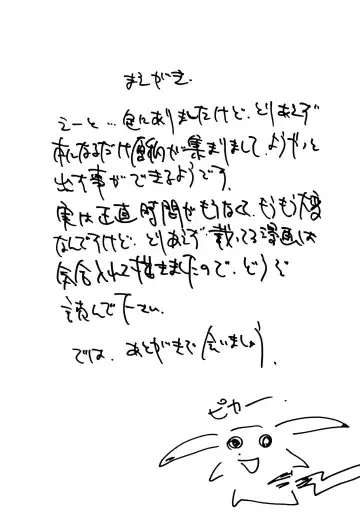 まえがき。
えーと…色々ありましたけど、とりあえず
本になるだけ原稿が集まりまして、ようやっと
出す事ができるようです。
実は正直時間がもうなくて、もうもう大変
なんですけど、とりあえず載ってる漫画は
気合入れて描きましたので、どうぞ
読んで下さい。
では、あとがきで会いましょう。
ピカー